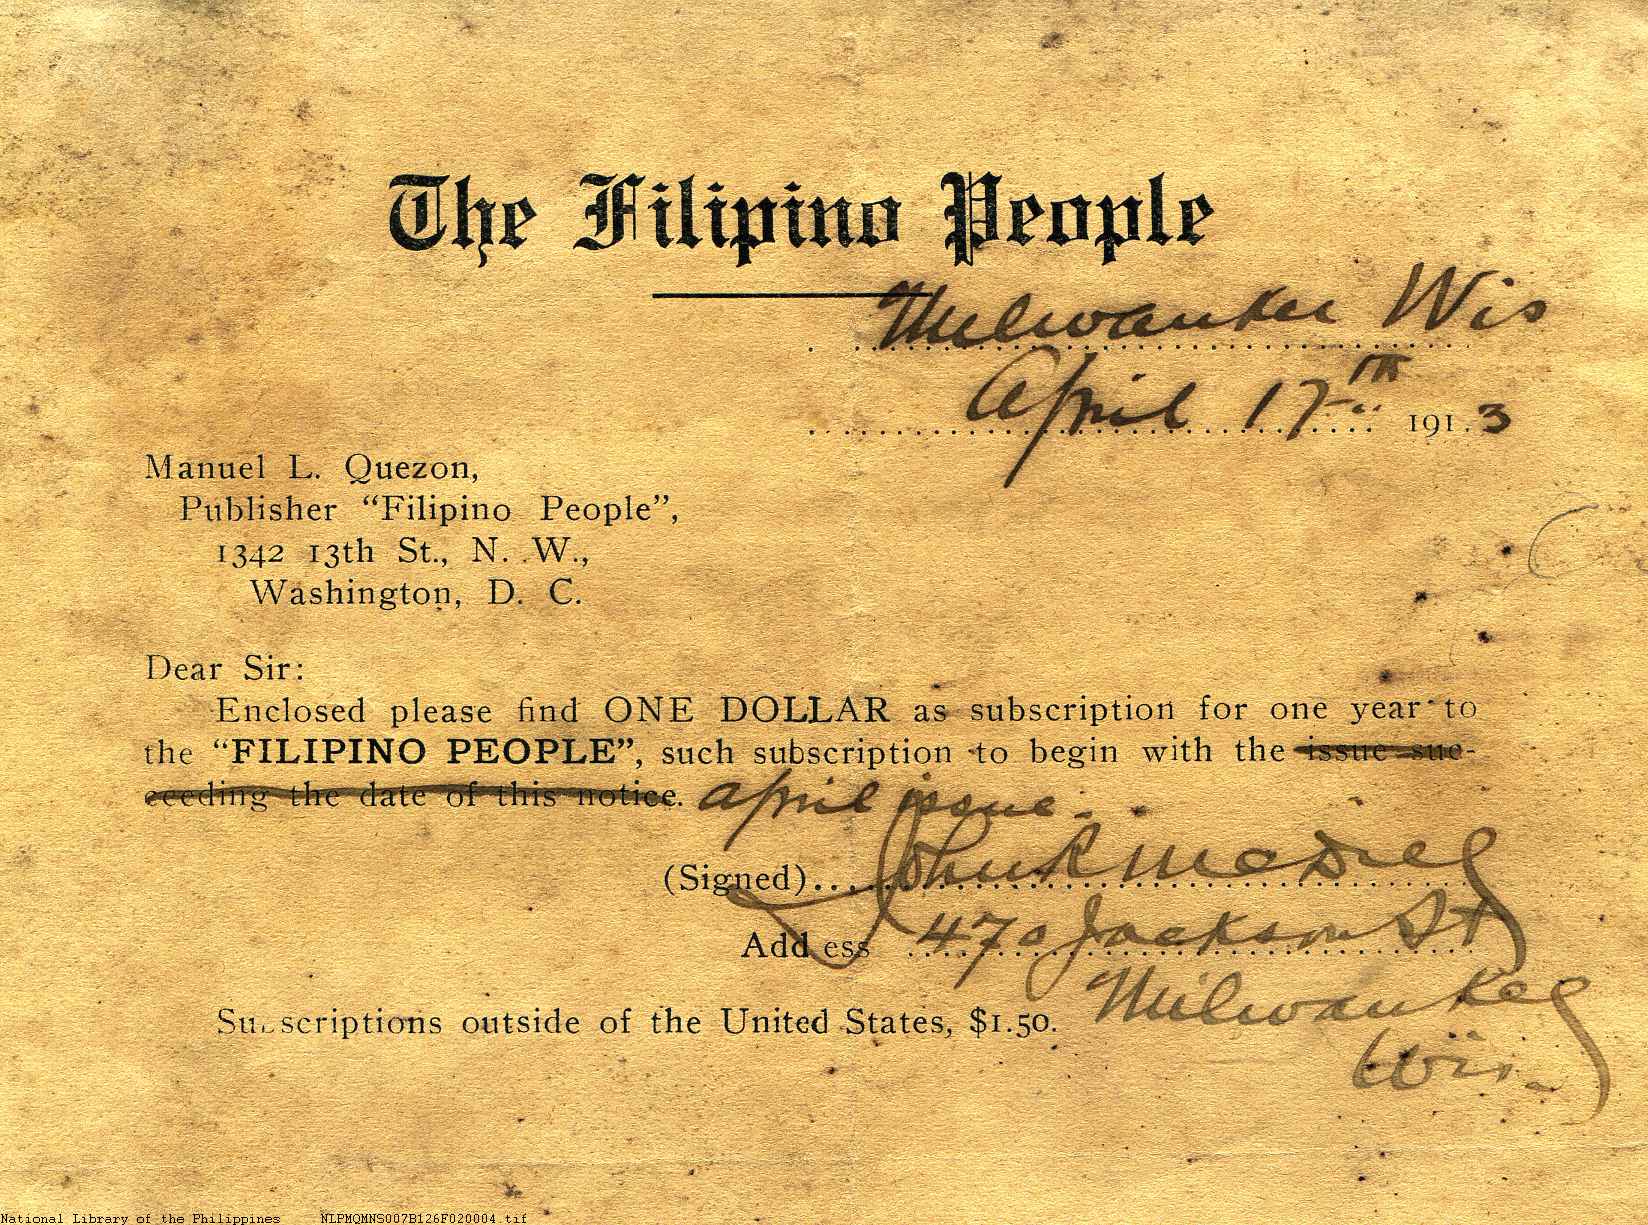 The Filipino People
Milwaukee Wis
April 17th 1913
Manuel L. Quezon,
Publisher "Filipino People",
1342 13th St., N. W.,
Washington, D. C.
Dear Sir:
Enclosed please find ONE DOLLAR as subscription for one year to
the "FILIPINO PEOPLE", such subscription to begin with the issue suc-
ceeding the date of this notice. April issue.
(Signed) John R
Address 470 Jackson St
Milwaukee
Wis.
Subscriptions outside of the United States, $1.50.
National Library of the Philippines NLPMQMNS007B126F020004.tif